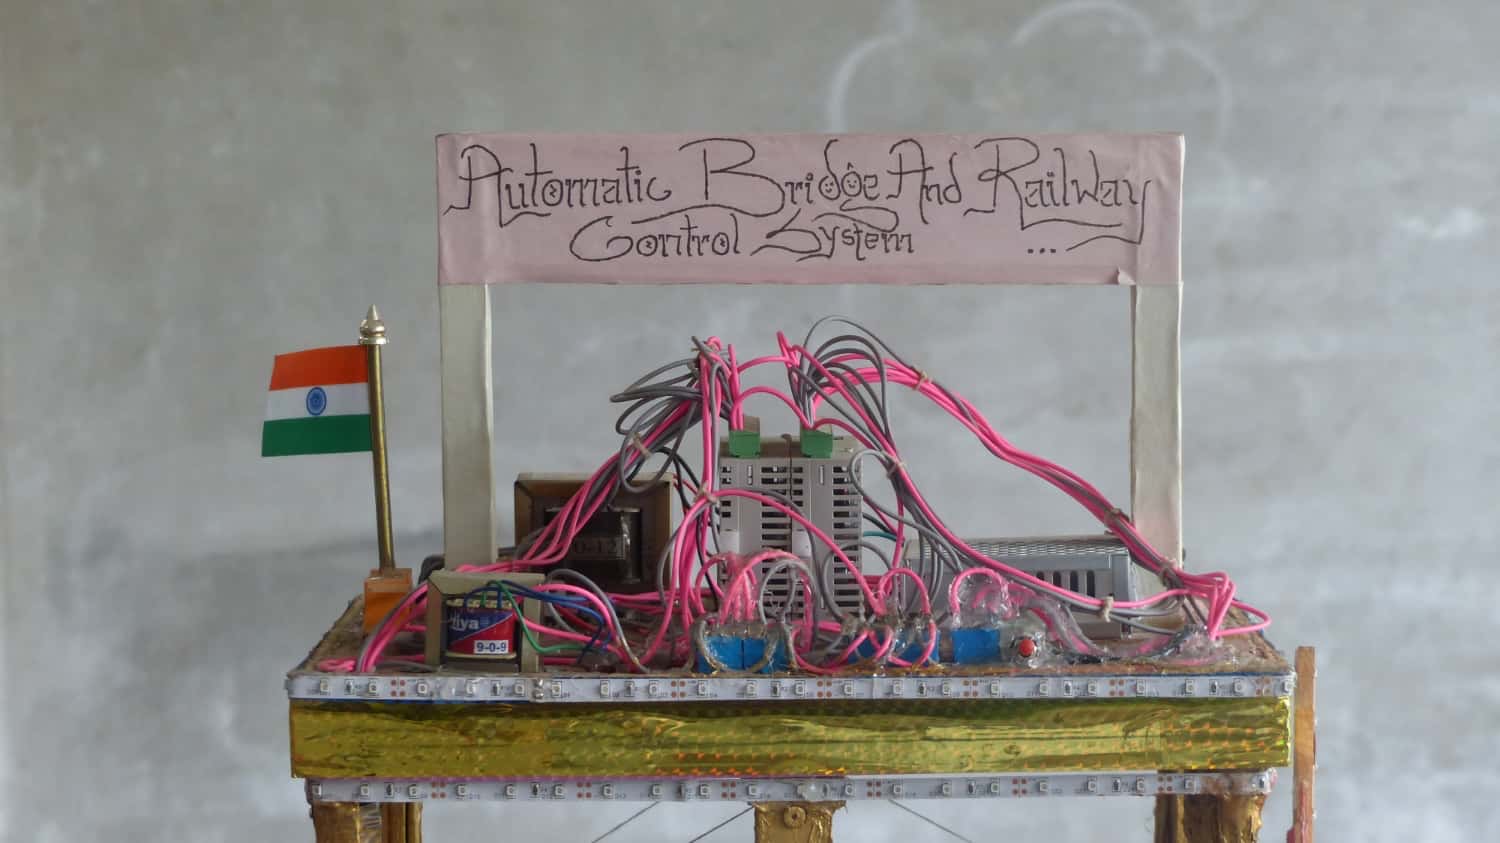 Automatic Bridge And Railway
Control System ...
0-12
iya
9-0-9